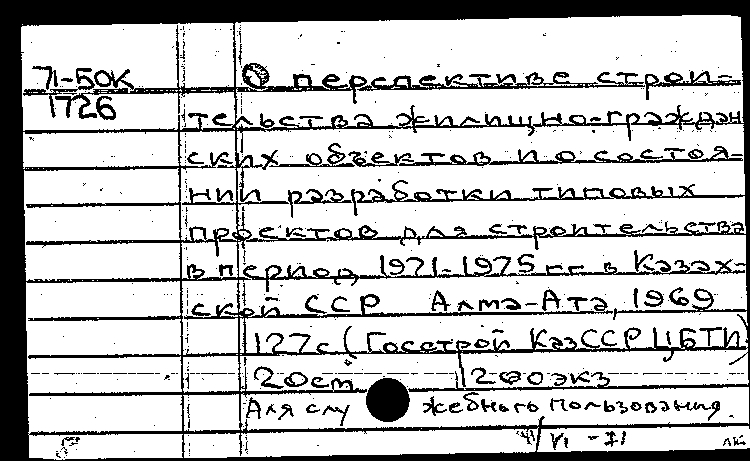 71-50К
1726
О перспективе строи-
тельства жилищно-граждан
ских объектов и о состоя-
нии разработки типовых
проектов для строительства
в период 1971-1975 гг. в Казах-
ской ССР Алма-Ата, 1969
127с (Госстрой КазССР ЦБТИ)
20см 200экз
Для служебного пользования.
VI - 71